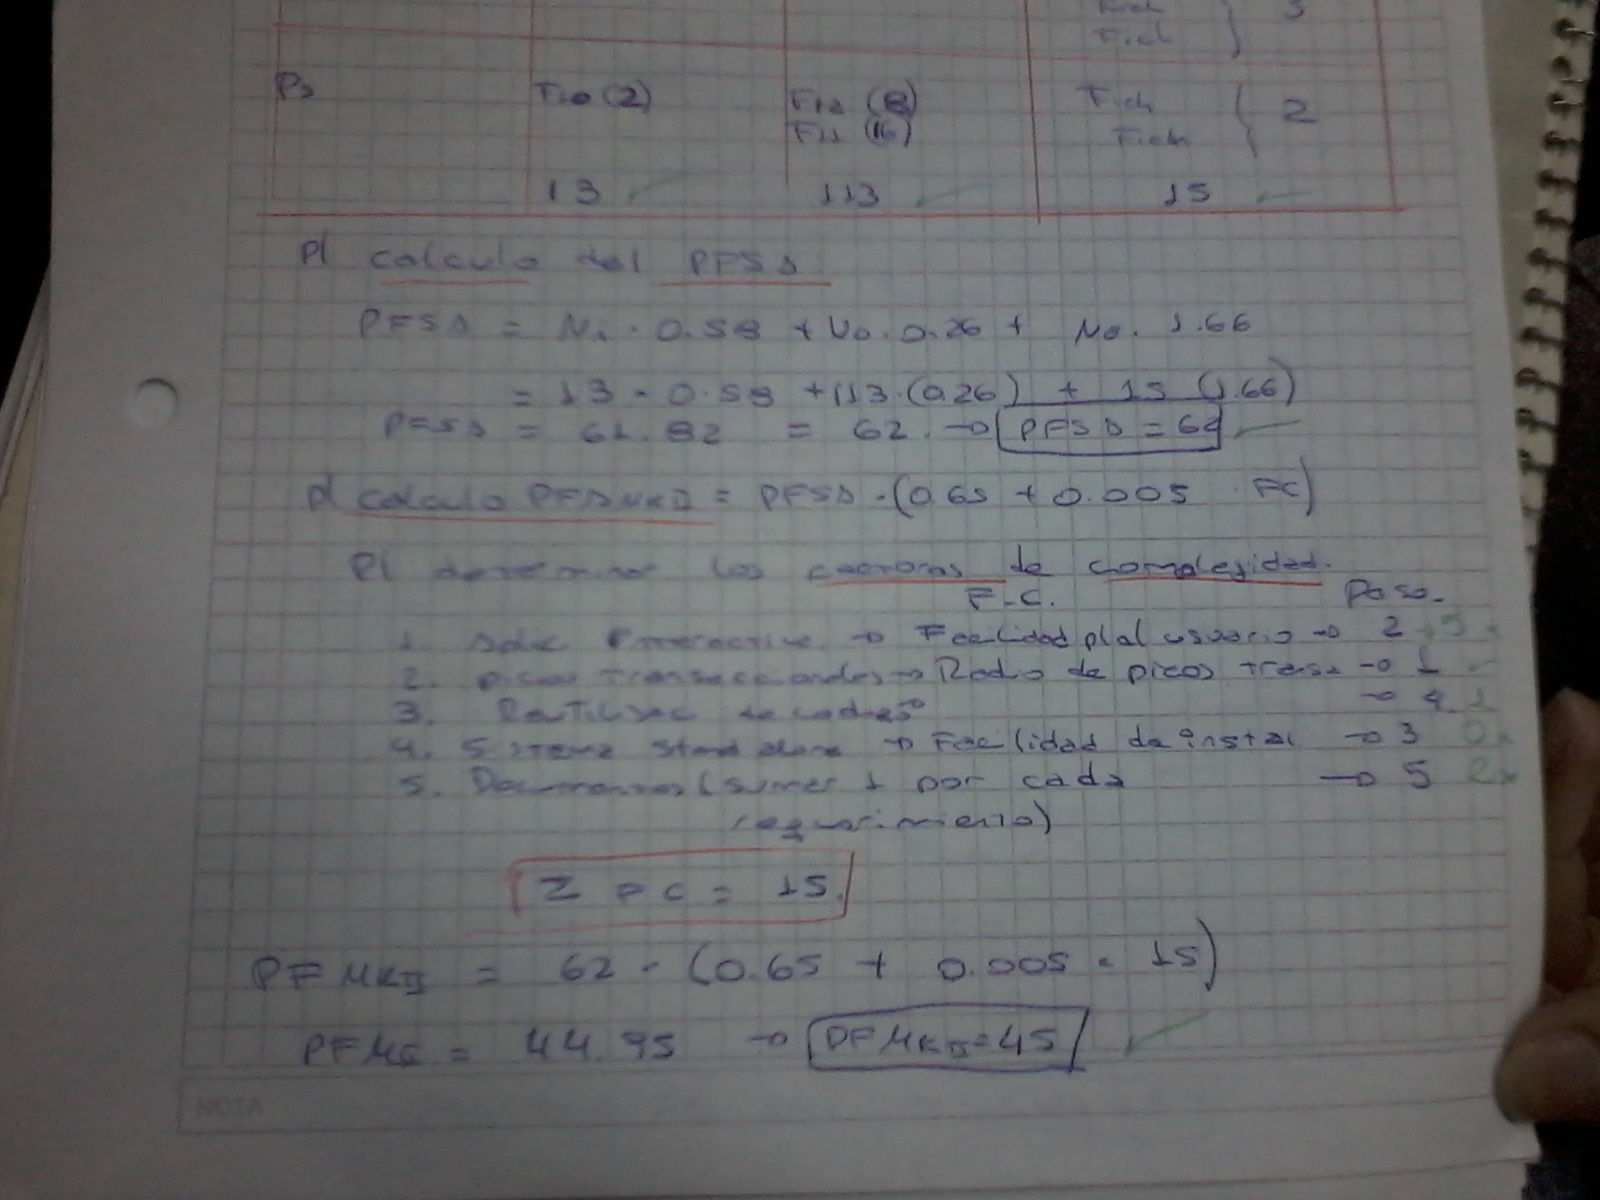 Fich } 3
Fich
P3 F10 (2) F12 (8) Fich } 2
F11 (16) Fich
13 113 15
P/ calculo del PFSA
PFSA = Ni . 0.58 + No . 0.26 + No . 1.66
= 13 . 0.58 + 113 . (0.26) + 15 (1.66)
PFSA = 61.82 = 62. → PFSA = 62
P/ calculo PFAMKII = PFSA . (0.65 + 0.005 . FC)
P/ determinar los factores de complejidad.
F.C. Peso.
1. Interactive → Facilidad p/al usuario → 2
2. picos transaccionales → Radio de picos trans → 1
3. → 4 1
4. Sistema stand alone → Facilidad de instal → 3 0
5. (sumar 1 por cada → 5 2
requerimiento)
Σ FC = 15.
PFMKII = 62 . (0.65 + 0.005 . 15)
PFMII = 44.95 → PFMKII = 45
NOTA